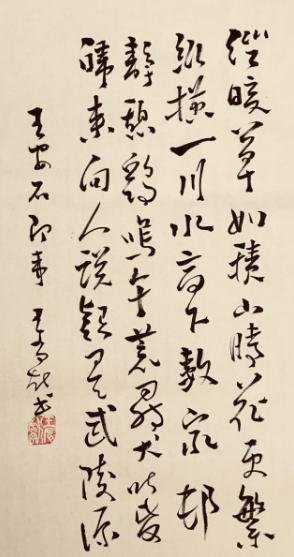 徑暖草如積山晴花更繁
縱橫一川水高下數家邨
靜憩鷄鳴午荒尋犬吠昏
歸來向人說疑是武陵源
王安石即事 王